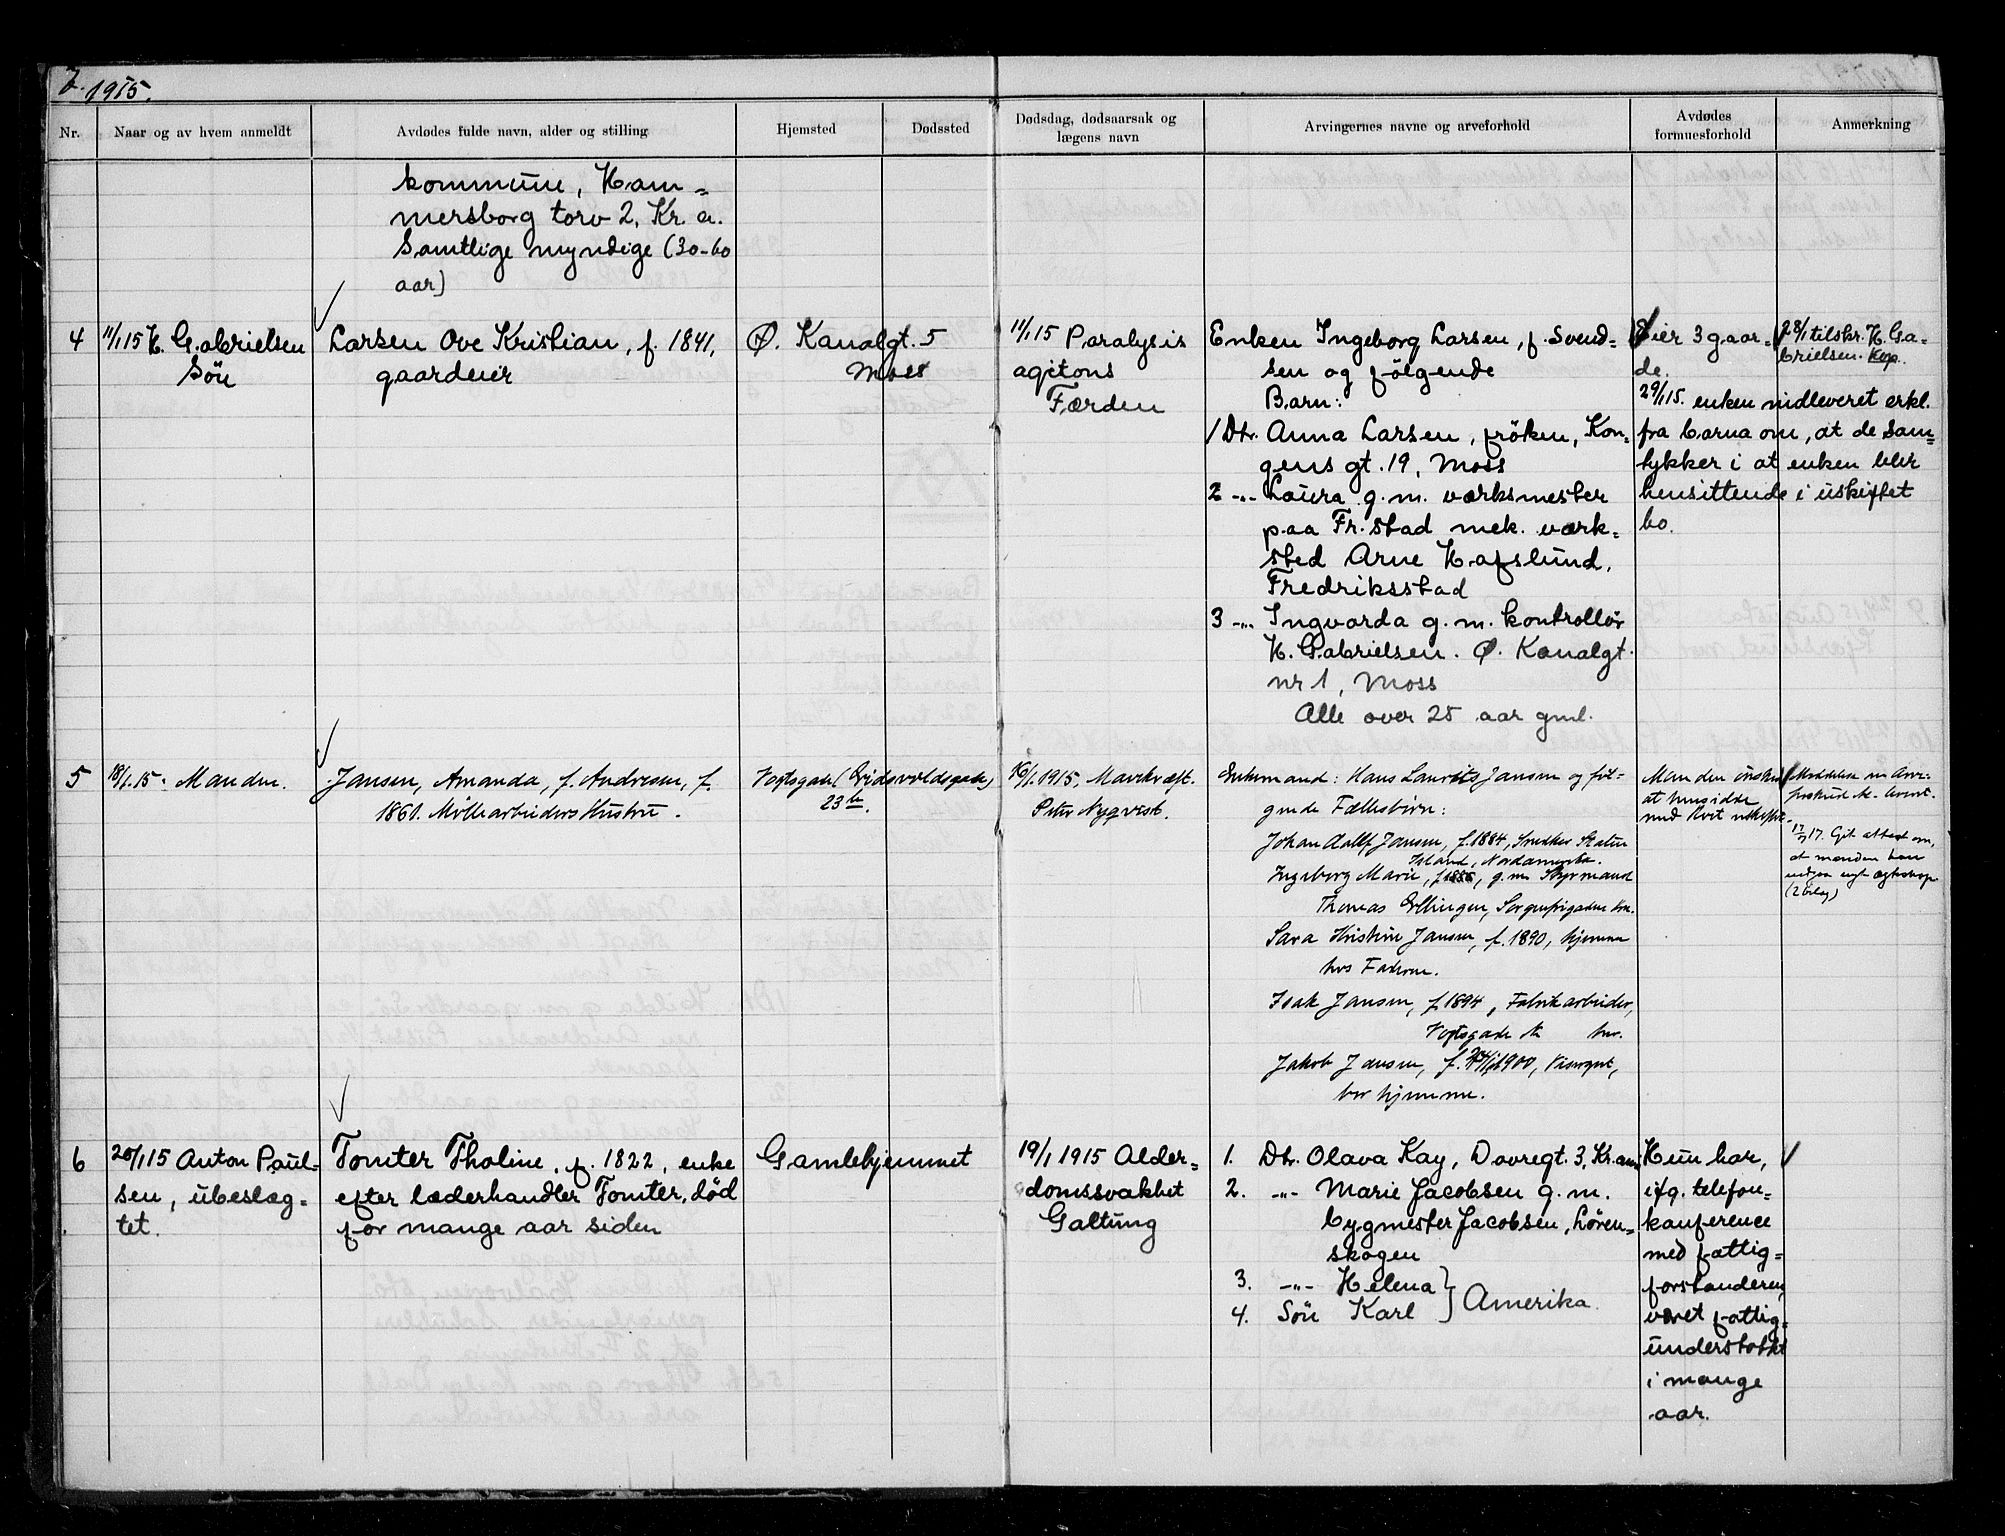 2.
1915.
Nr.
Naar og av hvem anmeldt
Avdødes fulde navn, alder og stilling
Hjemsted
Dødssted
Dødsdag, dødsaarsak og
lægens navn
Arvingernes navne og arveforhold
Avdødes
formuesforhold
Anmerkning
kommune, Ham-
mersborg torv 2, Kr. a.
Samtlige myndige (30-60
aar)
4
11/1 15 H. Gabrielsen
Søn
Larsen Ove Kristian, f. 1841,
gaardeier
Ø. Kanalgt. 5
Moss
11/1 15 Paralysis
agitans
Færden
Enken Ingeborg Larsen, f. Svend-
sen og følgende
Barn:
1 Dtr. Anna Larsen, frøken, Kon-
gens gt. 19, Moss
2 -"- Laura g. m. værksmester
paa Fr.stad mek. værk-
sted Arne Hafslund,
Fredriksstad
3 -"- Ingvarda g. m. kontrollør
H. Gabrielsen. Ø. Kanalgt.
nr 1, Moss
Alle over 25 aar gml.
Eier 3 gaar-
de.
29/1 15. enken indleveret erkl.
fra barna om, at de sam-
tykker i at enken blir
hensittende i uskiftet
bo.
28/1 tilskr. H. Ga-
brielsen. Kop.
5
18/1.15. Manden.
Jansen, Amanda, f. Andresen, f.
1861. Møllearbeiders Hustru.
Vogtsgade (Eidsvoldsgade)
23 b.
16/1.1915, Mavekræft.
Peter Nyqvist.
Enkemand: Hans Laurits Jansen og føl-
gende Fællesbørn:
Johan Adolf Jansen, f. 1884, Snekker Staten
Island, Nordamerika.
Ingeborg Marie, f. 1886, g. m. Styrmand
Thomas Ellingsen, Sorgenfrigaden Krn.
Sara Kristine Jansen, f. 1890, hjemme
hos Faderen.
Isak Jansen, f. 1894, Fabrikarbeider,
Vogtsgade her.
Jakob Jansen, f. 1900, Visergut,
bor hjemme.
Manden ønsker
at hensidde
med Avit uskiftet
17. Git attest om,
at manden kan
indgaa nyt ægteskap.
(2 bilag)
6
20/1 15 Anton Paul-
sen, ubeslæg-
tet.
Tomter Tholine, f. 1822, enke
efter læderhandler Tomter, død
for mange aar siden
Gamlehjemmet
19/1 1915 Alder-
domssvakhet
Galtung
1. Dtr. Olava Kay, Dovregt. 3, Kr.ania
2. -"- Marie Jacobsen g. m.
bygmester Jacobsen, Løren-
skogen
3. -"- Helena }
4. Søn Karl } Amerika.
Hun har,
ifg. telefon-
konference
med fattig-
forstanderen,
været fattig-
understøttet
i mange
aar.